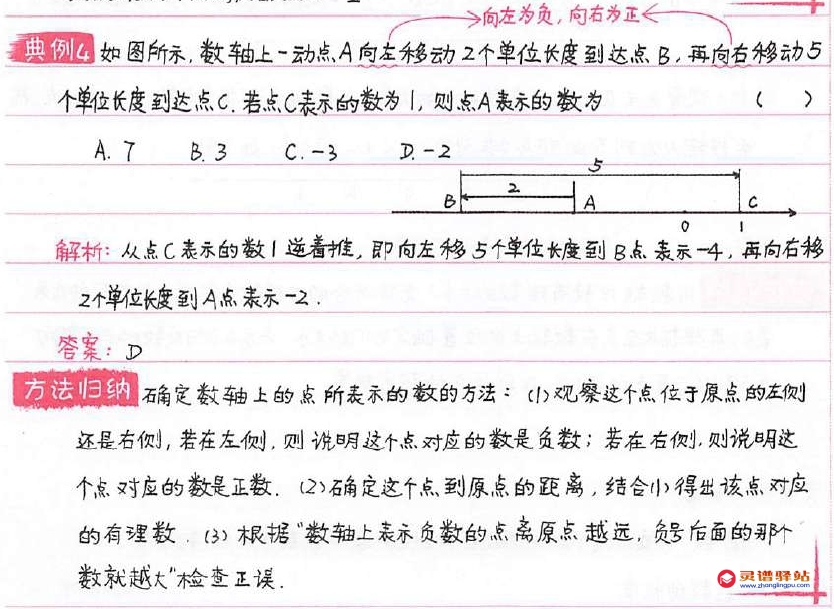 向左为负，向右为正
典例4 如图所示，数轴上一动点A向左移动2个单位长度到达点B，再向右移动5
个单位长度到达点C.若点C表示的数为1，则点A表示的数为 （ ）
A. 7 B. 3 C. -3 D. -2
5
2
B A C
0 1
解析：从点C表示的数1逆着推，即向左移5个单位长度到B点表示-4，再向右移
2个单位长度到A点表示-2.
答案：D
方法归纳 确定数轴上的点所表示的数的方法：(1)观察这个点位于原点的左侧
还是右侧，若在左侧，则说明这个点对应的数是负数；若在右侧，则说明这
个点对应的数是正数. (2)确定这个点到原点的距离，结合(1)得出该点对应
的有理数.(3)根据“数轴上表示负数的点离原点越远，负号后面的那个
数就越大”检查正误.
灵谱驿站
www.zhonglingpu.com